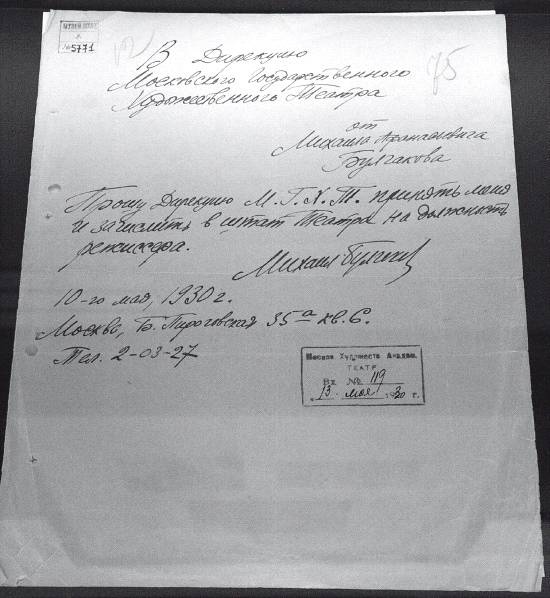 МУЗЕЙ МХАТ
№ 5771
75
В Дирекцию
Московского Государственного
Художественного Театра
от
Михаила Афанасьевича
Булгакова
Прошу Дирекцию М.Г.Х.Т. принять меня
и зачислить в штат Театра на должность
режиссера.
Михаил Булгаков
10-го мая, 1930 г.
Москва, Б. Пироговская 35а кв. 6.
Тел. 2-03-27
Москов Художеств Академ.
ТЕАТР
Вх № 119
"13" мая 1930 г.